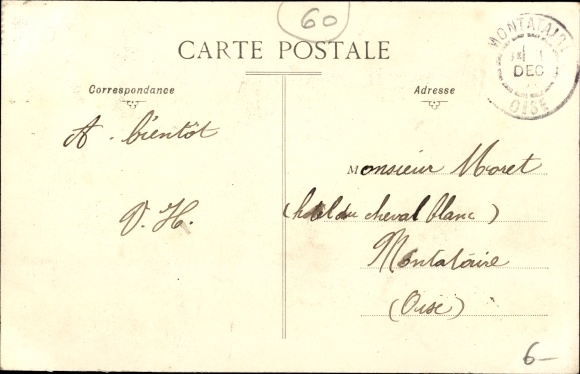 60
CARTE POSTALE
Correspondance
Adresse
MONTATAIRE
DEC
OISE
A bientôt
V. H.
Monsieur Moret
(hotel du cheval blanc)
Montataire
(Oise)
6-